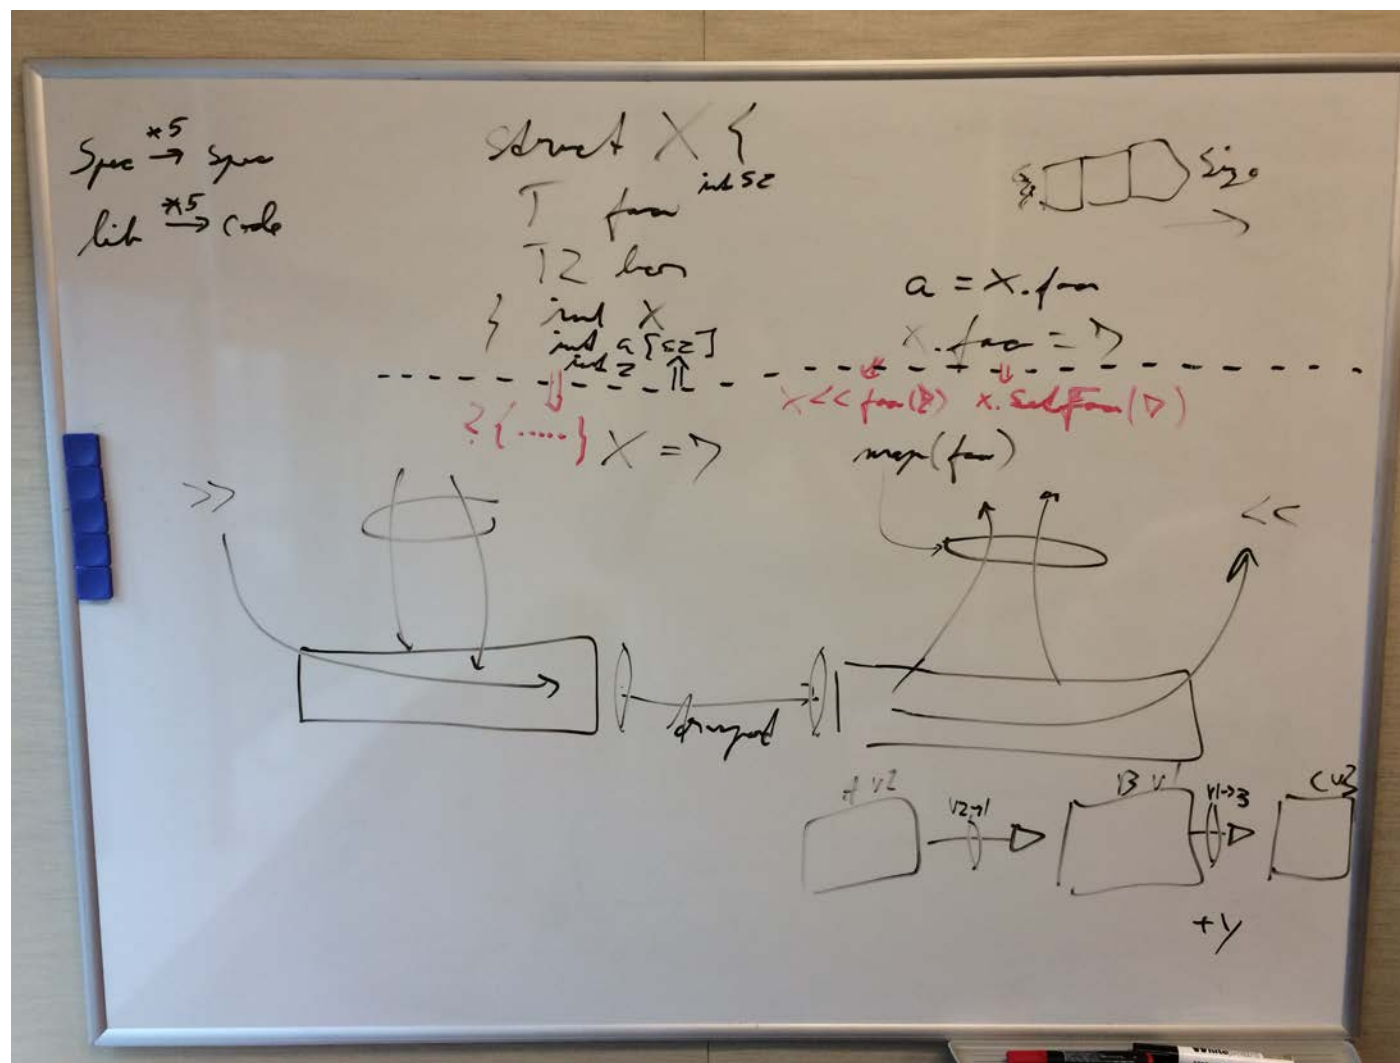 Spec *5→ Spec
lib *5→ Code
struct X {
int sz
T foo
T2 bar
} int X
int a[sz]
int z
Size
a = X.foo
X.foo = 7
?{.....} X = 7
X << foo(7) x.SetFoo(7)
map(foo)
>>
<<
transport
A v2
v2→1
B v1
v1→3
C v3
+y